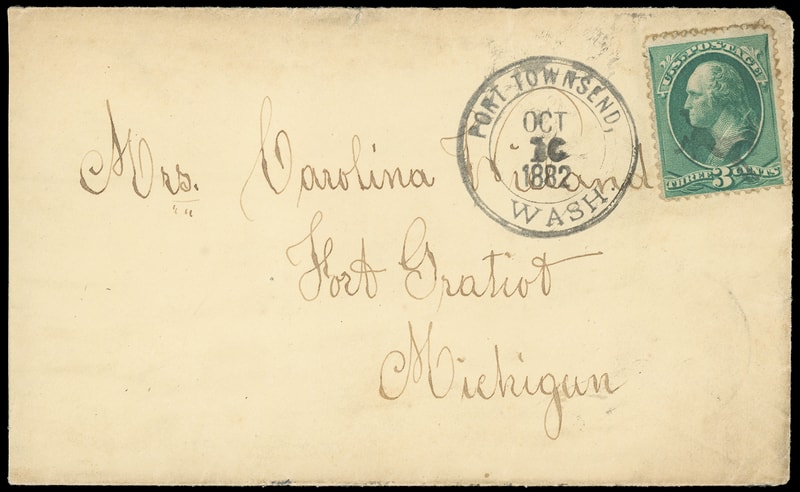 U.S. POSTAGE
THREE 3 CENTS
PORT TOWNSEND,
OCT
1882
WASH.
Mrs. Carolina
Fort Gratiot
Michigan